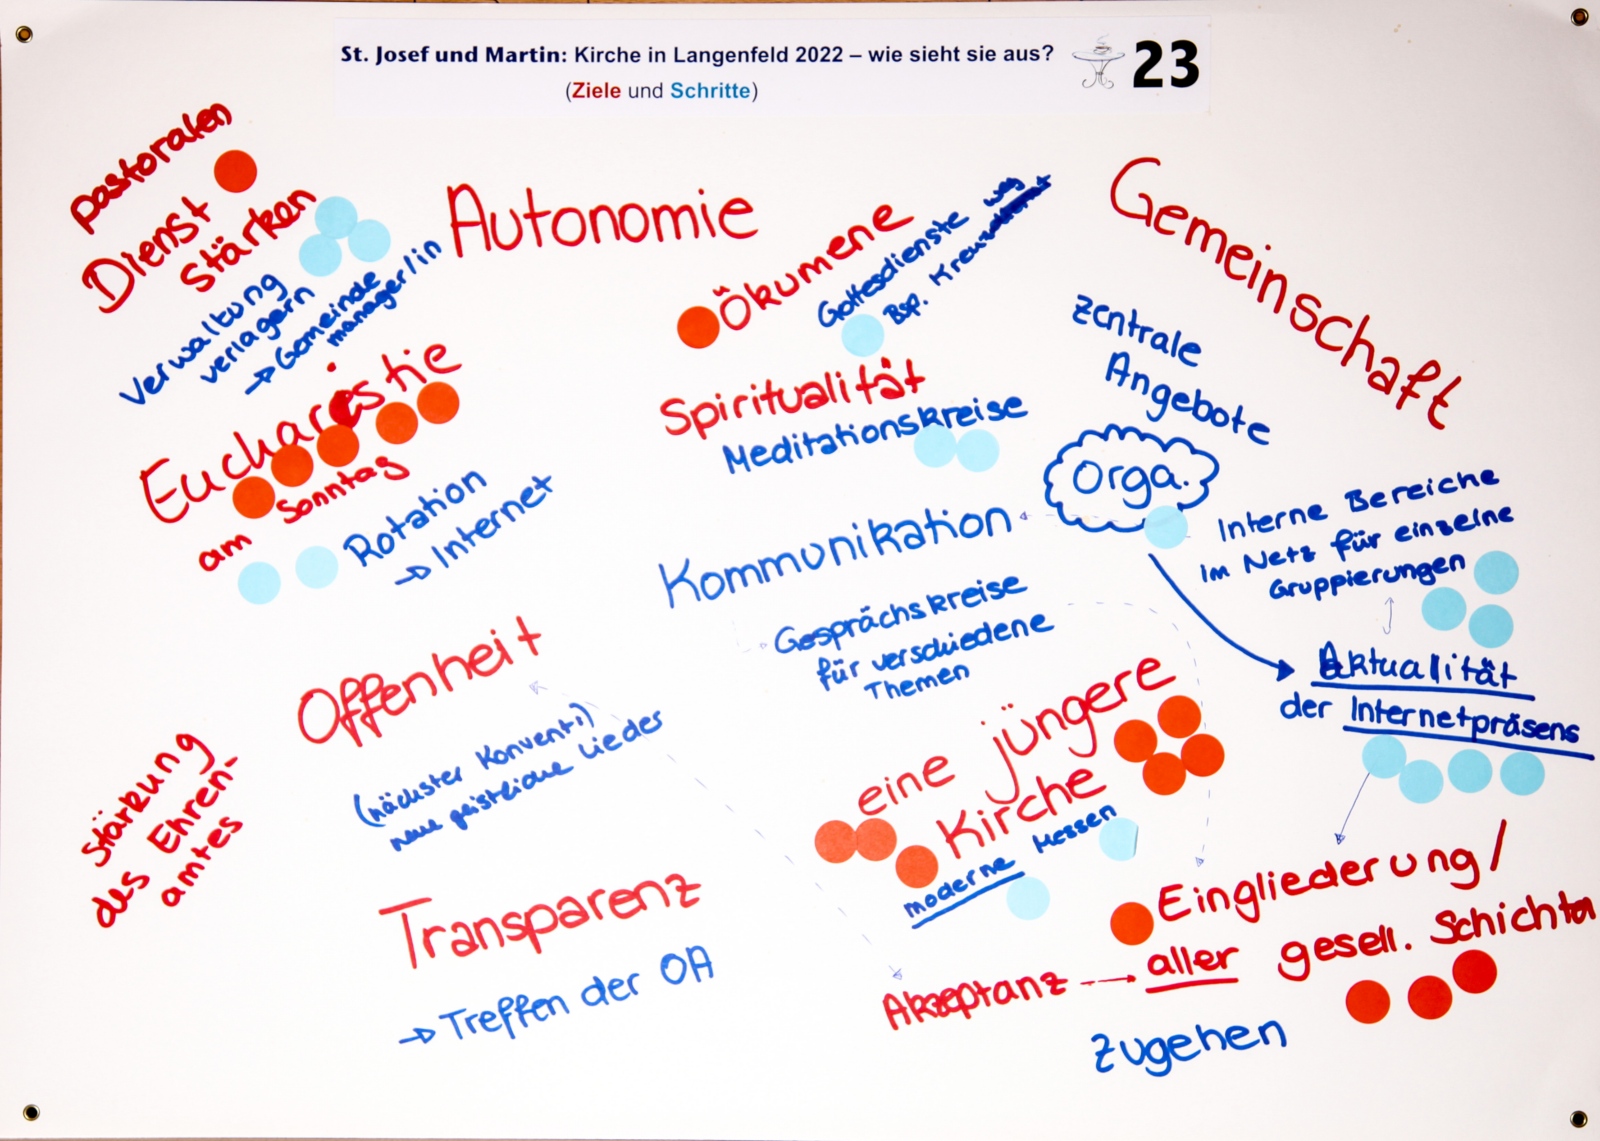 St. Josef und Martin: Kirche in Langenfeld 2022 – wie sieht sie aus?
(Ziele und Schritte)
23
pastoralen
Dienst
stärken
Verwaltung
verlagern
→ Gemeinde
manager/in
Autonomie
Ökumene
Gottesdienste
Bsp. Kreuz
weg
Gemeinschaft
zentrale
Angebote
Orga.
Eucharestie
am Sonntag
Rotation
→ Internet
Spiritualität
Meditationskreise
Kommunikation
Gesprächskreise
für verschiedene
Themen
Interne Bereiche
im Netz für einzelne
Gruppierungen
Aktualität
der Internetpräsens
Offenheit
(nächster Konvent!)
neue geistliche Lieder
Stärkung
des Ehren-
amtes
eine jüngere
Kirche
moderne Messen
Transparenz
→ Treffen der OA
Eingliederung/
Akzeptanz → aller gesell. Schichten
zugehen